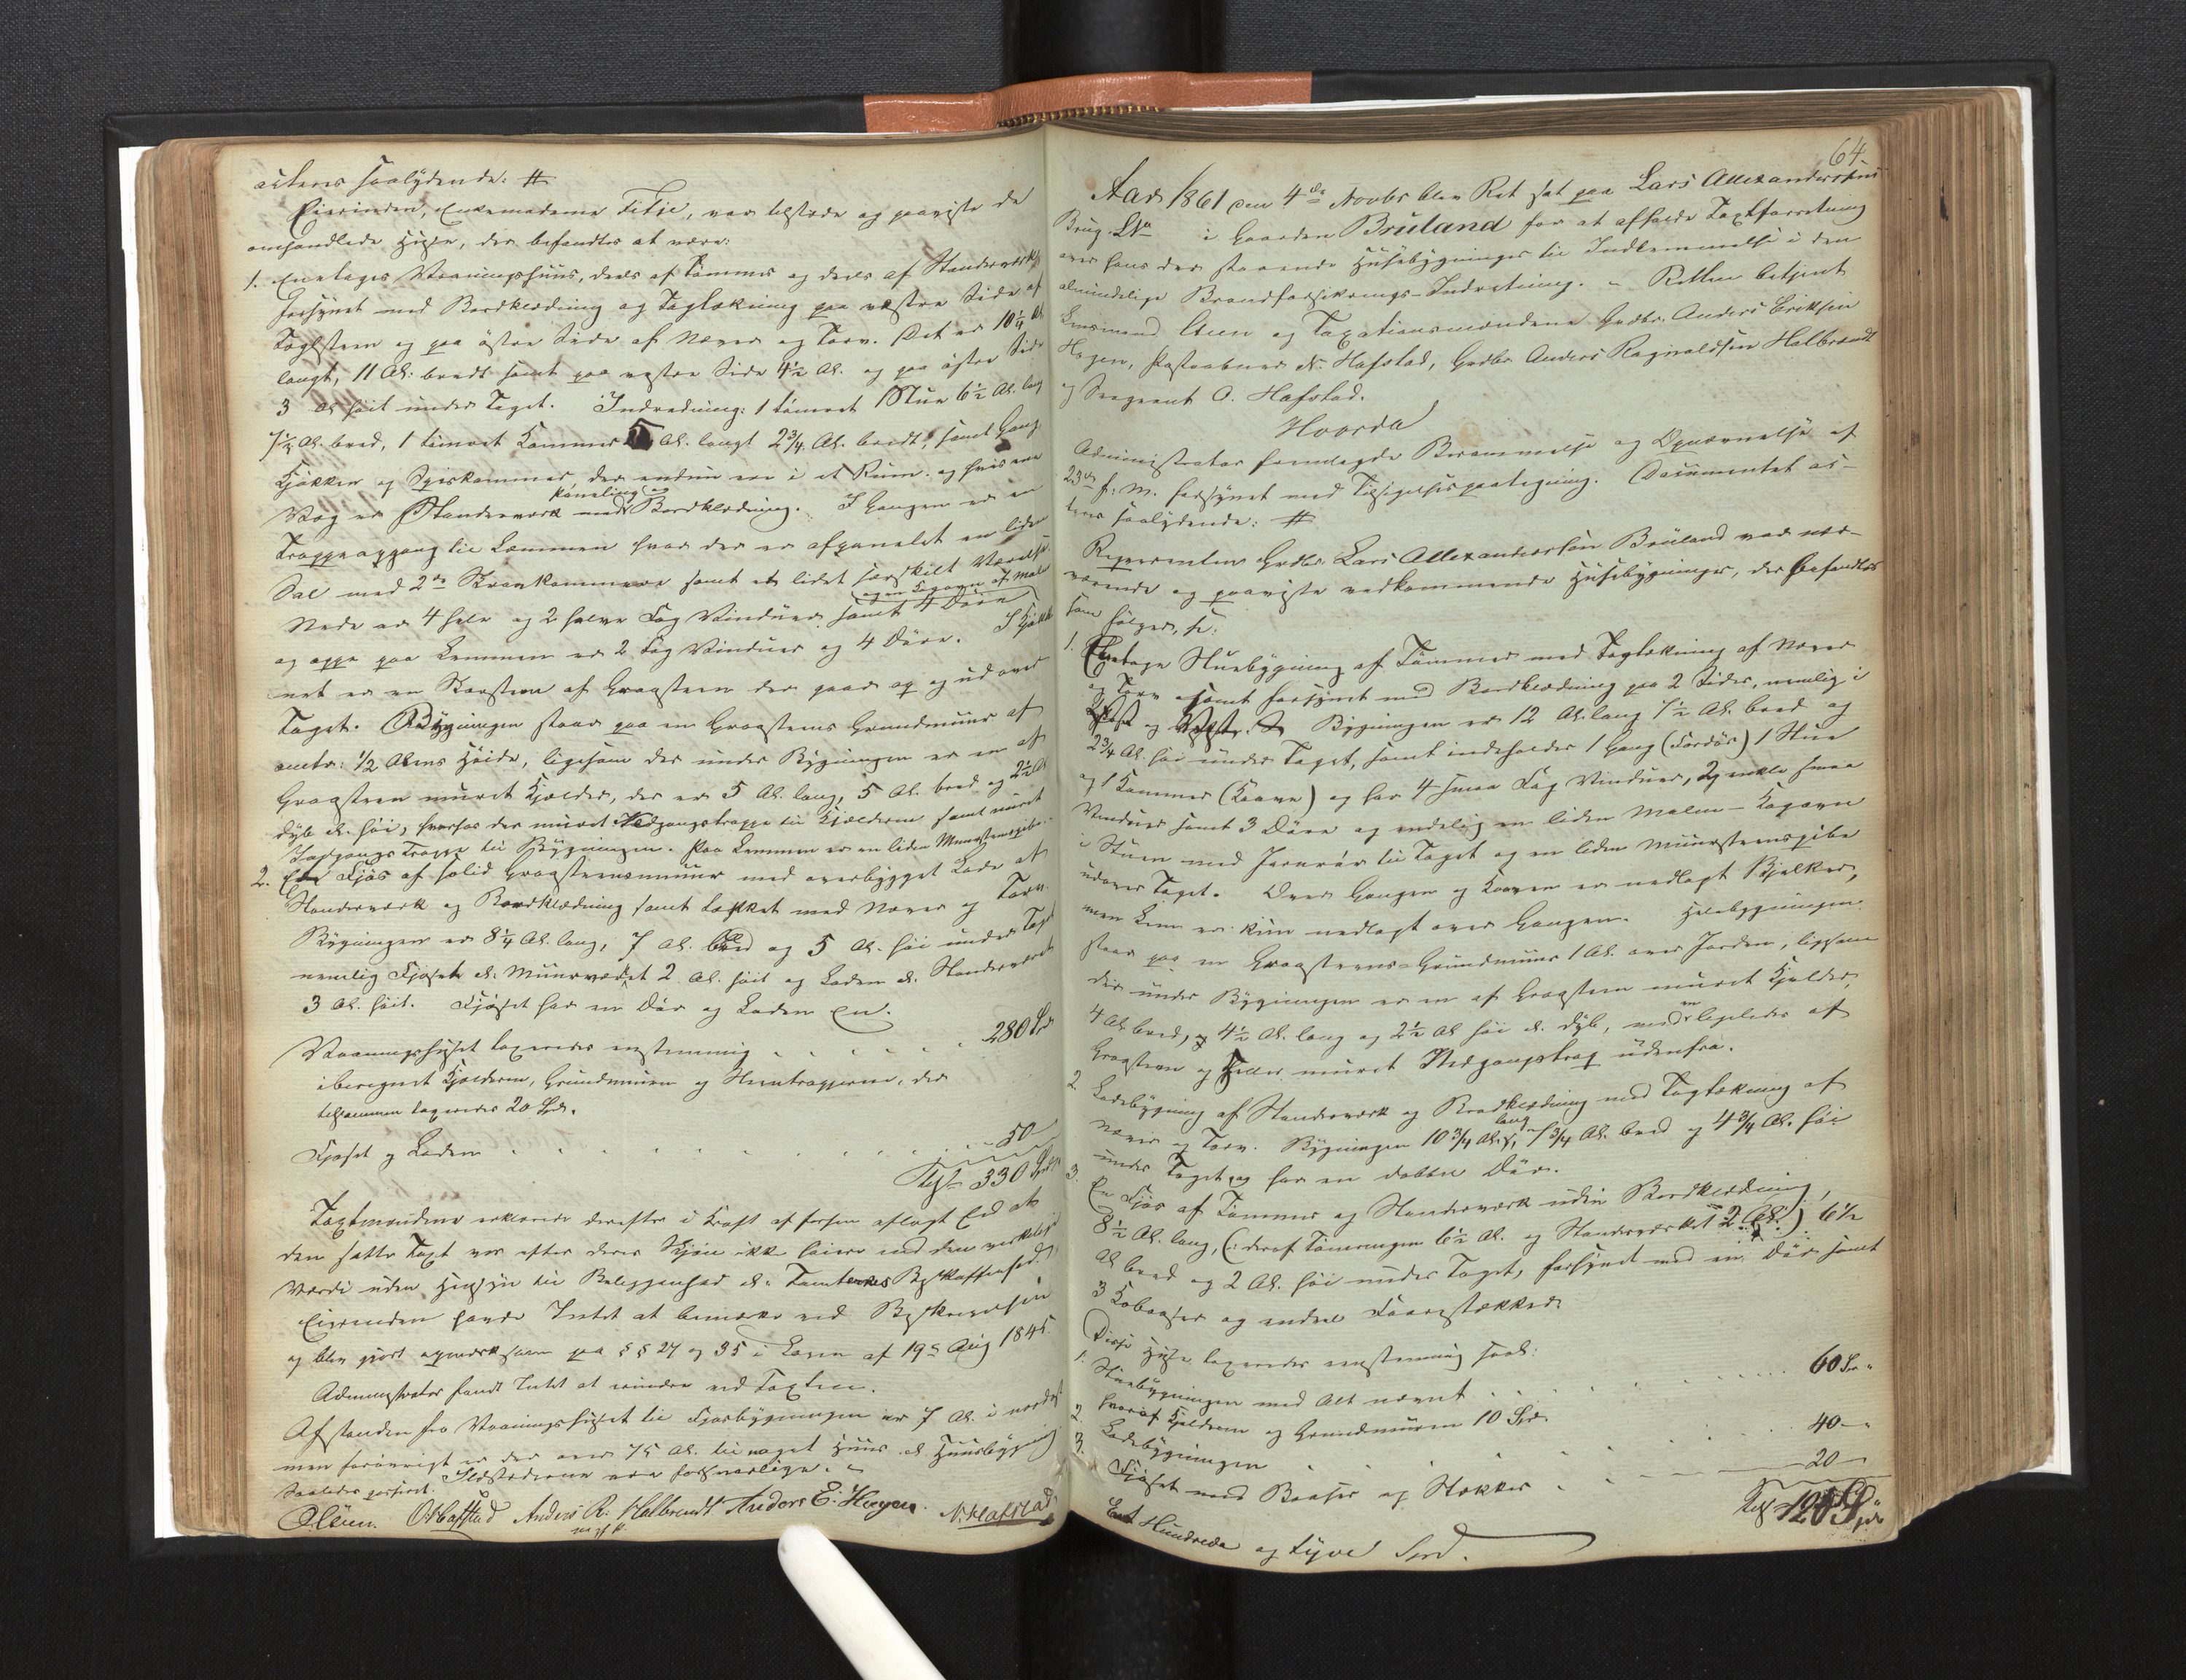 acteres saalydende: #
Eierinden, Enkemadame Fitje, var tilstæde og paaviste de
omhandlede Huse, der befandtes at være:
1. Eenetages Vaaningshuus, deels af Tømmer og deels af Standerværk
forsynet med Bordklædning og Tagtækning paa vestre Side af
Tagsteen og paa østre Side af Næver og Torv. Det er 10 1/4 Al.
langt, 11 Al: bredt samt paa vestre Side 4 1/2 Al. og paa østre Side
3 Al høit under Taget. Indredning: 1 tømret Stue 6 1/2 Al. lang
7 1/2 Al. bred, 1 tømret Kammer 5 Al. langt 2 3/4 Al. bredt, samt Gang
Kjøkken og Spiskammer, der endnu ere i et Rum. og hvis ene
Væg er Standerværk med paneling og Bordklædning. I Gangen er en
Trappeopgang til Lemmen hvor der er afpanelet en liden
Sal med 2de Kammere samt et lidet særskilt Værelse.
Nede er 4 hele og 2 halve Fag Vinduer samt 4 Døre og en Kaovn af Malm
og oppe paa Lemmen er 2 Fag Vinduer og 4 Døre. I Kjøk-
net er en Skorsteen af Graasteen der gaar op og ud over
Taget. Bygningen staar paa en Graasteens Grundmuur af
omtr: 1/2 Alens Høide, ligesom der under Bygningen er en af
Graasteen muret Kjelder, der er 5 Al. lang, 5 Al. bred og 2 1/2 Al
dyb el. høi, hvorhos der muret Nedgangstrappe til Kjelderen samt muret
Indgangs Trappe til Bygningen. Paa Lemmen er en liden Muursteenspibe.
2. En Fjøs af solid Graasteensmuur med overbygget Lade af
Standerværk og Bordklædning samt tækket med Næver og Torv.
Bygningen er 8 1/4 Al. lang, 7 Al. bred og 5 Al. høi under Taget
nemlig Fjøset el. Muurværket 2 Al. høit og Laden el. Standerværket
3 Al. høit. Fjøset har en Dør og Laden en.
Vaaningshuset taxeredes enstemmig . . . . . . 280 Spd
iberegnet Kjelderen, Grundmuren og Steentrapperne, der
tilsammen taxeredes 20 Spd.
Fjøset og Laden . . . . . . . . . . 50
Tils. 330 Spd
Taxtmændene erklærede derefter i Kraft af forhen aflagt Eed at
den satte Taxt var efter deres Skjøn ikke høiere end den virkelige
Værdi uden Hensyn til Beliggenhed el. Tomternes Beskaffenhed.
Eierinden havde Intet at bemærke ved Beskrivelsen
og blev gjort opmærksom paa §§ 27 og 35 i Loven af 19de Aug 1845.
Administrator fandt Intet at erindre ved Taxten.
Afstanden fra Vaaningshuset til Fjøsbygningen er 7 Al. i nordost
men forøvrigt er der over 75 Al. til noget Huus el Huusbygning
Ildstæderne ere forsvarlige.
Saaledes passeret.
OSteen. O Hafstad Anders R. Halbrendt Anders E. Hagen. N. Hafstad
m. f. P.
64.
Aar 1861 den 4de Novbr blev Ret sat paa Lars Allexandersens
Brug LNo i Gaarden Bruland for at afholde Taxtforretning
over hans der staaende Husebygninger til Indlemmelse i den
almindelige Brandforsikrings-Indretning. - Retten betjent
Lensmand Steen og Taxationsmændene Grdbr. Anders Eriksen
Hagen, Postaabner N. Hafstad, Grdbr Anders Ragnvaldsen Halbrendt
og Sergeant O. Hafstad.
Hvorda
Administrator fremlagde Berammelse og Opnævnelse af
23de f. M. forsynet med Tilsigelsespaategning. Documentet ac-
teres saalydende: #
Reqvirenten Grdbr. Lars Allexandersøn Bruland var nær-
værende og paaviste vedkommende Husebygninger, der befandtes
som følger, se:
1. Eenetages Stuebygning af Tømmer med Tagtækning af Næver
og Torv samt forsynet med Bordklædning paa 2 Sider, nemlig i
Øst og Vest. Bygningen er 12 Al. lang 7 1/2 Al. bred og
2 3/4 Al. høi under Taget, samt indeholder 1 Gang (Fordør) 1 Stue
og 1 Kammer (Kaave) og har 4 smaa Fag Vinduer, 2 enkle smaa
Vinduer samt 3 Døre og endelig en liden Malm-Kaovn
i Stuen med Jernrør til Taget og en liden Muursteenspibe
udover Taget. Over Gangen og Kaaven er nedlagt Bjelker,
men Lem er kun nedlagt over Gangen. Helebygningen
staar paa en Graasteens-Grundmuur 1 Al. over Jorden, ligesom
der under Bygningen er en af Graasteen muret Kjelder,
4 Al bred, 4 1/2 Al. lang og 2 1/2 Al høi el. dyb, med en ligeledes af
Graasteen og Heller muret Nedgangstrap udenfra.
2 Ladebygning af Standerværk og Bordklædning med Tagtækning af
Næver og Torv. Bygningen 10 3/4 Al. lang, 7 3/4 Al. bred og 4 3/4 Al. høi
under Taget og har en dobbelt Dør.
3. En Fjøs af Tømmer og Standerværk uden Bordklædning,
8 1/2 Al. lang, (: deraf Tømringen 6 1/2 Al. og Standerværket 2 Al. :) 6 1/2
Al bred og 2 Al. høi under Taget, forsynet med en Dør samt
3 Kobaaser og endeel Faarestækker.
Disse Huse taxeredes eenstemmig saal:
1. Stuebygningen med Alt nævnt . . . . . . 60 Spd "
hvoraf Kjelderen og Grundmuren 10 Spd.
2. Ladebygningen . . . . . . 40 - "
3. Fjøset med Baaser og Stækker . . . . 20 -
Tils 120 Spd
Eet Hundrede og tyve Spd.